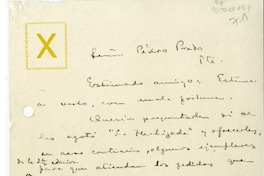 X
Señor Pedro Prado
Pte.
Estimado amigo: Estuve
a verlo, con mala fortuna.
Quería preguntarle si
agotó "La Hechizada" y ofrecerle,
en caso contrario, algunos ejemplares
de la 2ª edición
para que atiendan los pedidos que